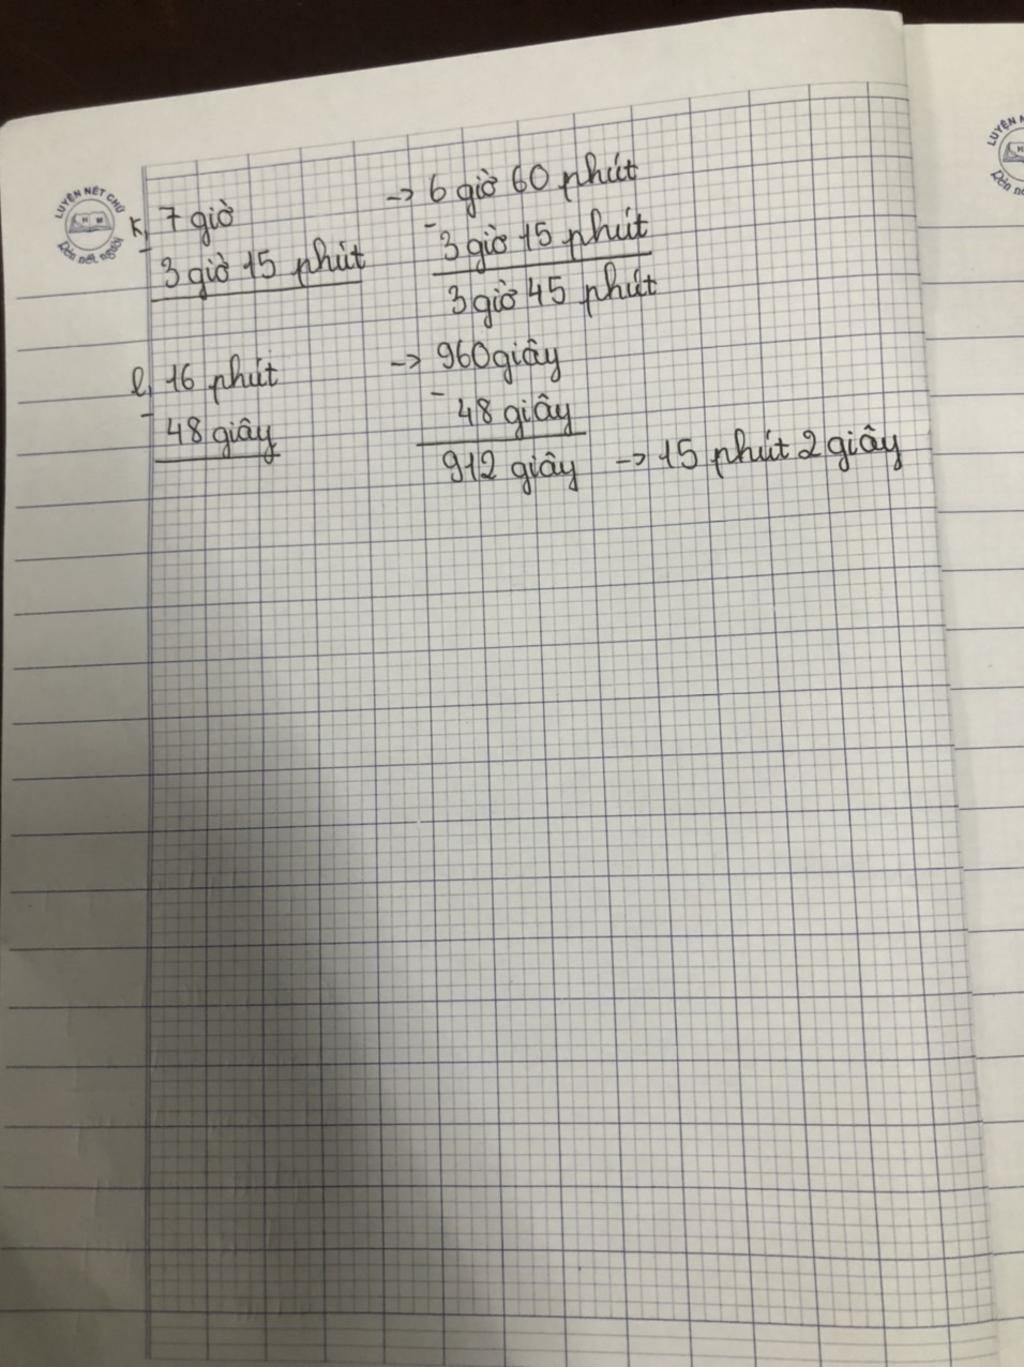 LUYỆN NÉT CHỮ
H M
Rèn nết người
LUYỆN
K, 7 giờ -> 6 giờ 60 phút
- -
3 giờ 15 phút 3 giờ 15 phút
3 giờ 45 phút
l, 16 phút -> 960 giây
- -
48 giây 48 giây
912 giây -> 15 phút 2 giây